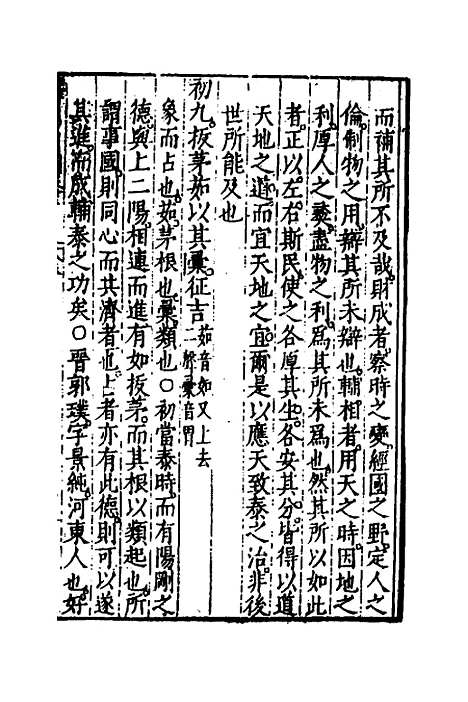 而補其所不及哉財成者察時之變經國之野定人之
倫制物之用辯其所未辯也輔相者用天之時因地之
利厚人之養盡物之利爲其所未爲也然其所以如此
者正以左右斯民使之各厚其生各安其分皆得以道
天地之道而宜天地之宜爾是以應天致泰之治非後
世所能及也
初九拔茅茹以其彙征吉茹音如又上去二聲彙音胃
象而占也茹茅根也彙類也〇初當泰時而有陽剛之
德與上二陽相連而進有如拔茅而其根以類起也所
謂事國則同心而共濟者也上者亦有此德則可以遂
其進而成輔泰之功矣〇晋郭璞字景純河東人也好